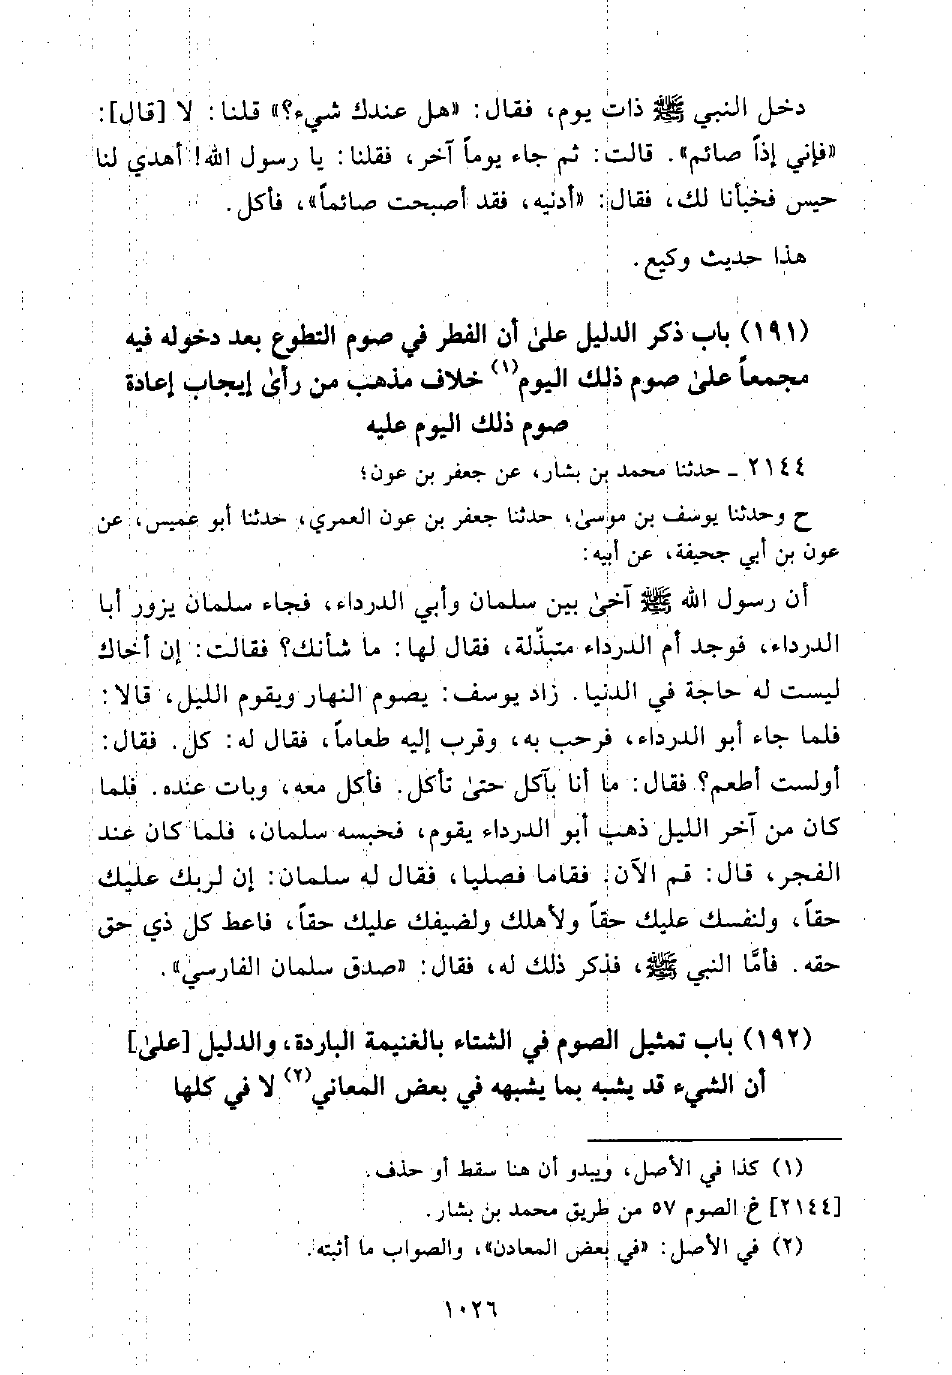 دخل النبي ﷺ ذات يوم، فقال: «هل عندك شيء؟» قلنا: لا [قال]:
«فإني إذاً صائم». قالت: ثم جاء يوماً آخر، فقلنا: يا رسول الله! أهدي لنا
حيس فخبأنا لك، فقال: «أدنيه، فقد أصبحت صائماً»، فأكل.
هذا حديث وكيع.
(١٩١) باب ذكر الدليل علىٰ أن الفطر في صوم التطوع بعد دخوله فيه
مجمعاً علىٰ صوم ذلك اليوم(١) خلاف مذهب من رأىٰ إيجاب إعادة
صوم ذلك اليوم عليه
٢١٤٤ ـ حدثنا محمد بن بشار، عن جعفر بن عون؛
ح وحدثنا يوسف بن موسىٰ، حدثنا جعفر بن عون العمري، حدثنا أبو عميس، عن
عون بن أبي جحيفة، عن أبيه:
أن رسول الله ﷺ آخىٰ بين سلمان وأبي الدرداء، فجاء سلمان يزور أبا
الدرداء، فوجد أم الدرداء متبذّلة، فقال لها: ما شأنك؟ فقالت: إن أخاك
ليست له حاجة في الدنيا. زاد يوسف: يصوم النهار ويقوم الليل، قالا:
فلما جاء أبو الدرداء، فرحب به، وقرب إليه طعاماً، فقال له: كل. فقال:
أولست أطعم؟ فقال: ما أنا بآكل حتىٰ تأكل. فأكل معه، وبات عنده. فلما
كان من آخر الليل ذهب أبو الدرداء يقوم، فحبسه سلمان، فلما كان عند
الفجر، قال: قم الآن. فقاما فصليا، فقال له سلمان: إن لربك عليك
حقاً، ولنفسك عليك حقاً ولأهلك ولضيفك عليك حقاً، فاعط كل ذي حق
حقه. فأمَّا النبي ﷺ، فذكر ذلك له، فقال: «صدق سلمان الفارسي».
(١٩٢) باب تمثيل الصوم في الشتاء بالغنيمة الباردة، والدليل [علىٰ]
أن الشيء قد يشبه بما يشبهه في بعض المعاني(٢) لا في كلها
(١) كذا في الأصل، ويبدو أن هنا سقط أو حذف.
[٢١٤٤] خ الصوم ٥٧ من طريق محمد بن بشار.
(٢) في الأصل: «في بعض المعادن»، والصواب ما أثبته.
١٠٢٦